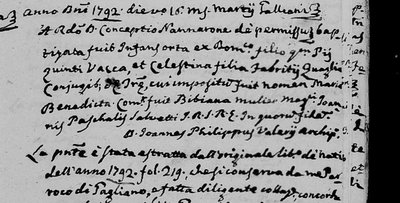 Anno Dnī 1792. die vo 16. Ms. Martij Talliani
A Rdō D. Conceptio Nannarone de permissu bap
tizata fuit Infans orta ex Dom.co filio qm Pij
quinti Vacca, et Celestina filia Fabritij Quaglia
Conjugib; de Tr͠a, cui impositu͠ fuit nomen Maria
Benedicta Com͠r fuit Bibiana mulier mag.ci Joan
nis Paschalis Salvatti I. R. I. R. E. In quoru͠ fide͠
D. Joannes Philippus Valerij archip.
La pn͠te è stata estratta dall'originale lib.o de nati
dell'anno 1792. fol. 219. che si conserva da me Par
roco di Tagliano, e fatta diligente collaz. concord